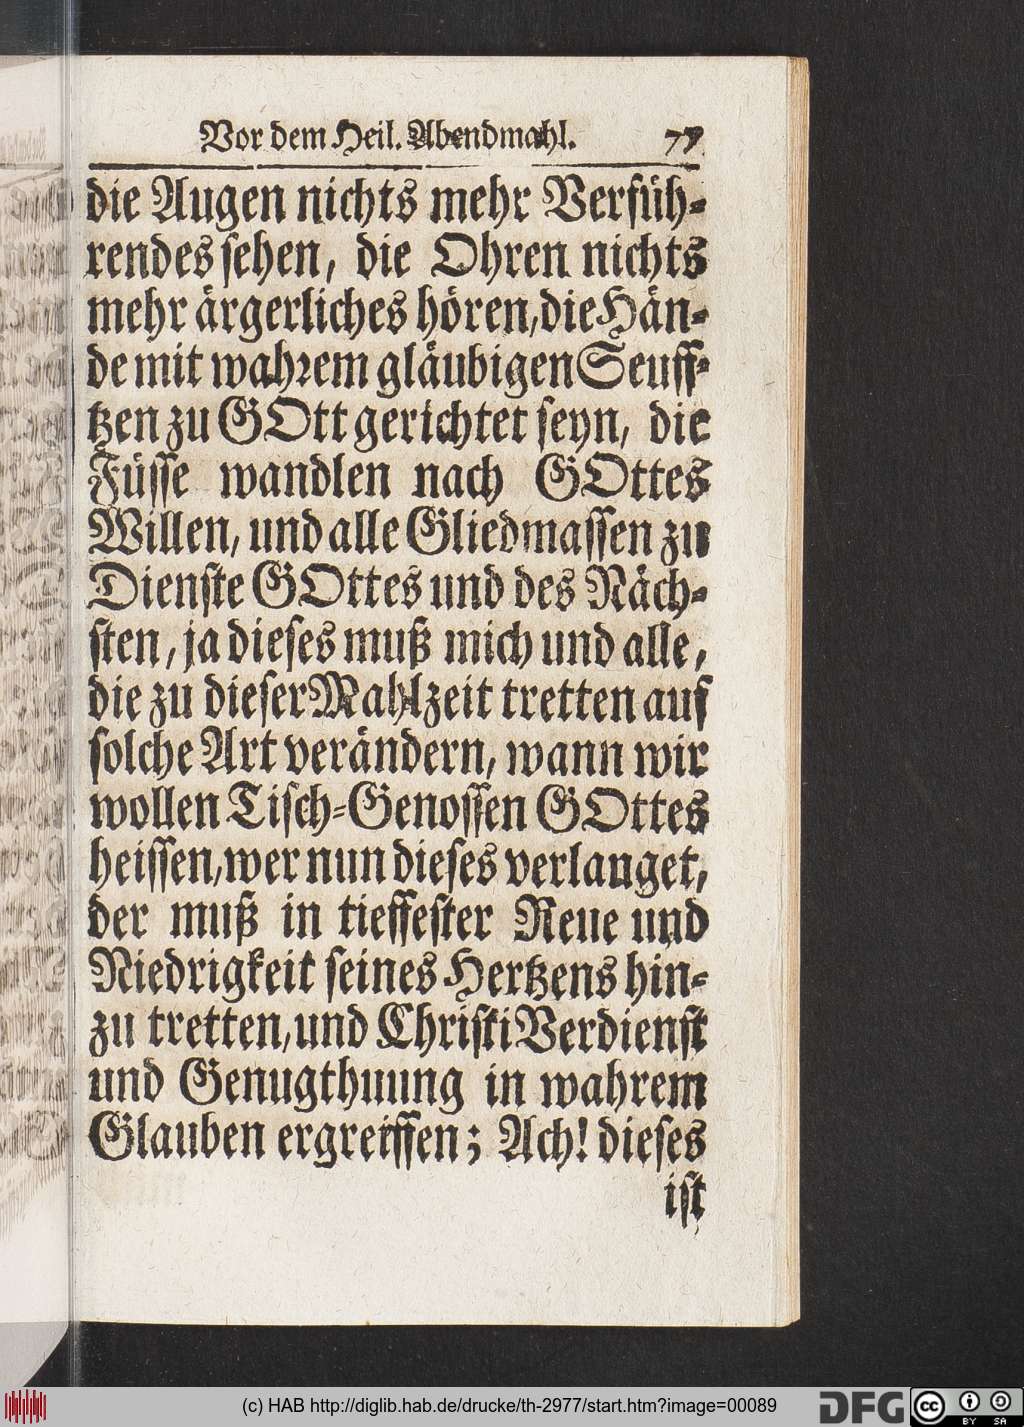 Vor dem Heil. Abendmahl. 77
die Augen nichts mehr Verfüh-
rendes sehen, die Ohren nichts
mehr ärgerliches hören, die Hän-
de mit wahrem gläubigen Seuff-
tzen zu GOtt gerichtet seyn, die
Füsse wandlen nach GOttes
Willen, und alle Gliedmassen zu
Dienste GOttes und des Näch-
sten, ja dieses muß mich und alle,
die zu dieser Mahlzeit tretten auf
solche Art verändern, wann wir
wollen Tisch-Genossen GOttes
heissen, wer nun dieses verlanget,
der muß in tieffester Reue und
Niedrigkeit seines Hertzens hin-
zu tretten, und Christi Verdienst
und Genugthuung in wahrem
Glauben ergreiffen; Ach! dieses
ist
(c) HAB http://diglib.hab.de/drucke/th-2977/start.htm?image=00089
DFG
cc BY SA